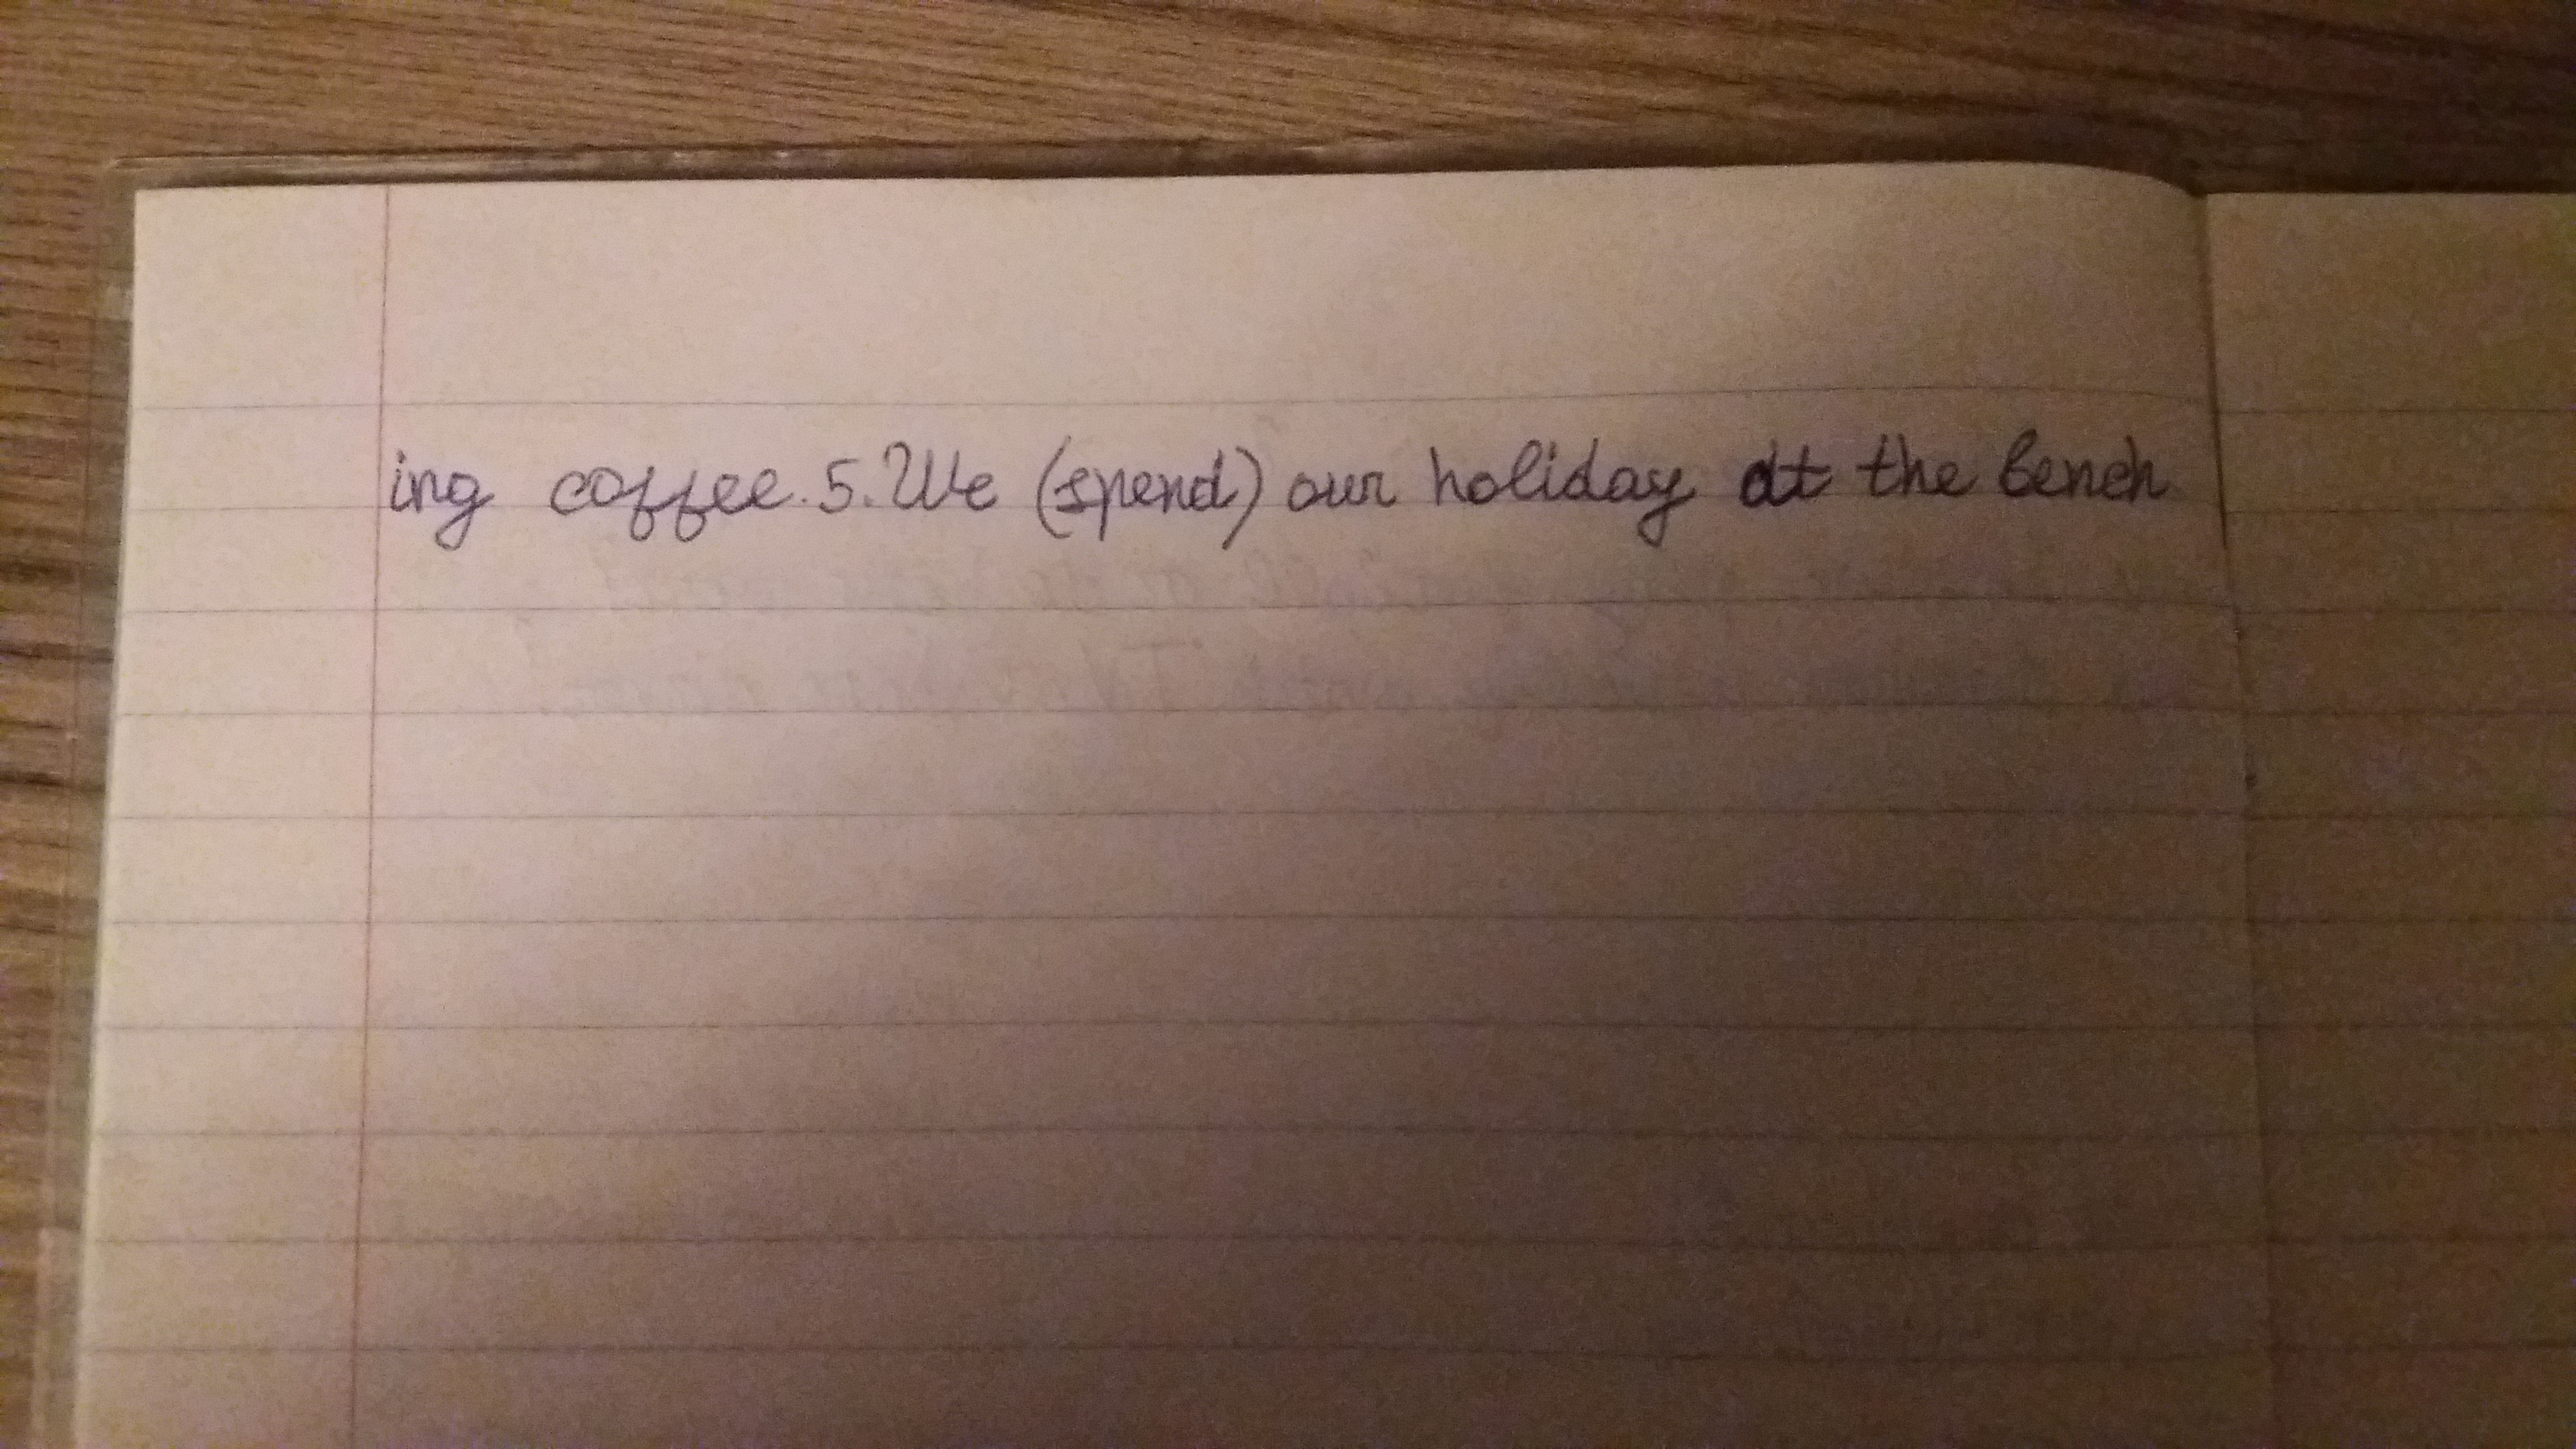 ing coffee. 5. We (spend) our holiday at the bench